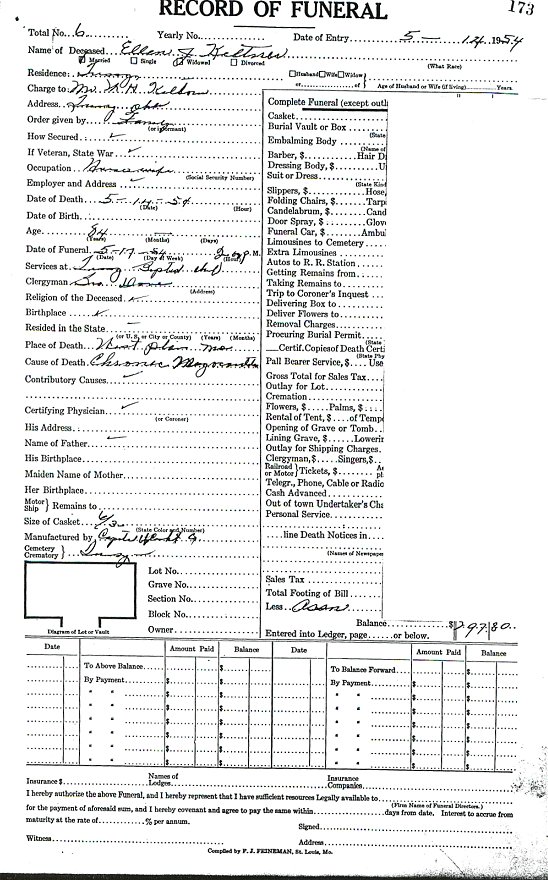 RECORD OF FUNERAL
173
Total No. 6 Yearly No. Date of Entry 5 - 14 1954
Name of Deceased Ellen J.
Married Single Widowed Divorced (What Race)
Residence: Husband Wife Widow
or of Age of Husband or Wife (if living) Years
Charge to: Mr.
Address
Order given by Family
(or informant)
How Secured
If Veteran, State War
Occupation Housewife
(Social Security Number)
Employer and Address
Date of Death 5 - 14 - 54
(Date) (Hour)
Date of Birth
Age 84
(Years) (Months) (Days)
Date of Funeral 5 - 17 - 54 2:00 P. M.
(Date) (Day of Week) (Hour)
Services at Baptist
Clergyman
(Address)
Religion of the Deceased
Birthplace
Resided in the State
(or U. S. or City or County) (Years) (Months)
Place of Death West Plains Mo
Cause of Death Chronic
Contributory Causes
Certifying Physician
(or Coroner)
His Address
Name of Father
His Birthplace
Maiden Name of Mother
Her Birthplace
Motor
Ship } Remains to
Size of Casket 6/3
(State Color and Number)
Manufactured by
Cemetery
Crematory }
Diagram of Lot or Vault
Lot No.
Grave No.
Section No.
Block No.
Owner
Complete Funeral (except outl
Casket
Burial Vault or Box
(State
Embalming Body
(Name of
Barber, $ Hair D
Dressing Body, U
Suit or Dress
(State Kind
Slippers, $ Hose,
Folding Chairs, $ Tarp
Candelabrum, $ Cand
Door Spray, $ Glov
Funeral Car, $ Ambu
Limousines to Cemetery
Extra Limousines
Autos to R. R. Station
Getting Remains from
Taking Remains to
Trip to Coroner's Inquest
Delivering Box to
Deliver Flowers to
Removal Charges
Procuring Burial Permit
(State
Certif. Copies of Death Certi
(State Phy
Pall Bearer Service, $ Use
Gross Total for Sales Tax
Outlay for Lot
Cremation
Flowers, $ Palms, $
Rental of Tent, $ of Temp
Opening of Grave or Tomb
Lining Grave, $ Lowerin
Outlay for Shipping Charges
Clergyman, $ Singers, $
Railroad
or Motor } Tickets, $
Telegr., Phone, Cable or Radio
Cash Advanced
Out of town Undertaker's Cha
Personal Service
line Death Notices in
(Names of Newspaper
Sales Tax
Total Footing of Bill
Less
Balance $ 297.80
Entered into Ledger, page or below.
Date Amount Paid Balance Date Amount Paid Balance
To Above Balance $ To Balance Forward $
By Payment $ $ By Payment $ $
" " $ $ " " $ $
" " $ $ " " $ $
" " $ $ " " $ $
" " $ $ " " $ $
" " $ $ " " $ $
" " $ $ " " $ $
Insurance $ Names of Lodges Insurance Companies
I hereby authorize the above Funeral, and I hereby represent that I have sufficient resources Legally available to
(Firm Name of Funeral Directors.)
for the payment of aforesaid sum, and I hereby covenant and agree to pay the same within days from date. Interest to accrue from
maturity at the rate of % per annum. Signed
Witness Address
Compiled by F. J. FEINEMAN, St. Louis, Mo.